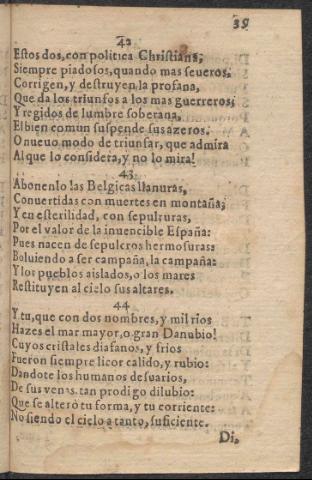 39
42
Estos dos, con politica Christiana,
Siempre piadosos, quando mas seueros,
Corrigen, y destruyen la profana,
Que da los triunfos a los mas guerreros;
Y regidos de lumbre soberana,
El bien comun suspende sus azeros.
O nueuo modo de triunfar, que admira
Al que lo considera, y no lo mira!
43
Abonenlo las Belgicas llanuras,
Conuertidas con muertes en montaña;
Y en esterilidad, con sepulturas,
Por el valor de la inuencible España:
Pues nacen de sepulcros hermosuras:
Boluiendo a ser campaña, la campaña:
Y los pueblos aislados, o los mares
Restituyen al cielo sus altares.
44
Y tu, que con dos nombres, y mil rios
Hazes el mar mayor, o gran Danubio!
Cuyos cristales diafanos, y frios
Fueron siempre licor calido, y rubio:
Dandote los humanos desuarios,
De sus venas tan prodigo dilubio:
Que se alterò tu forma, y tu corriente:
No siendo el cielo a tanto, suficiente.
Di-